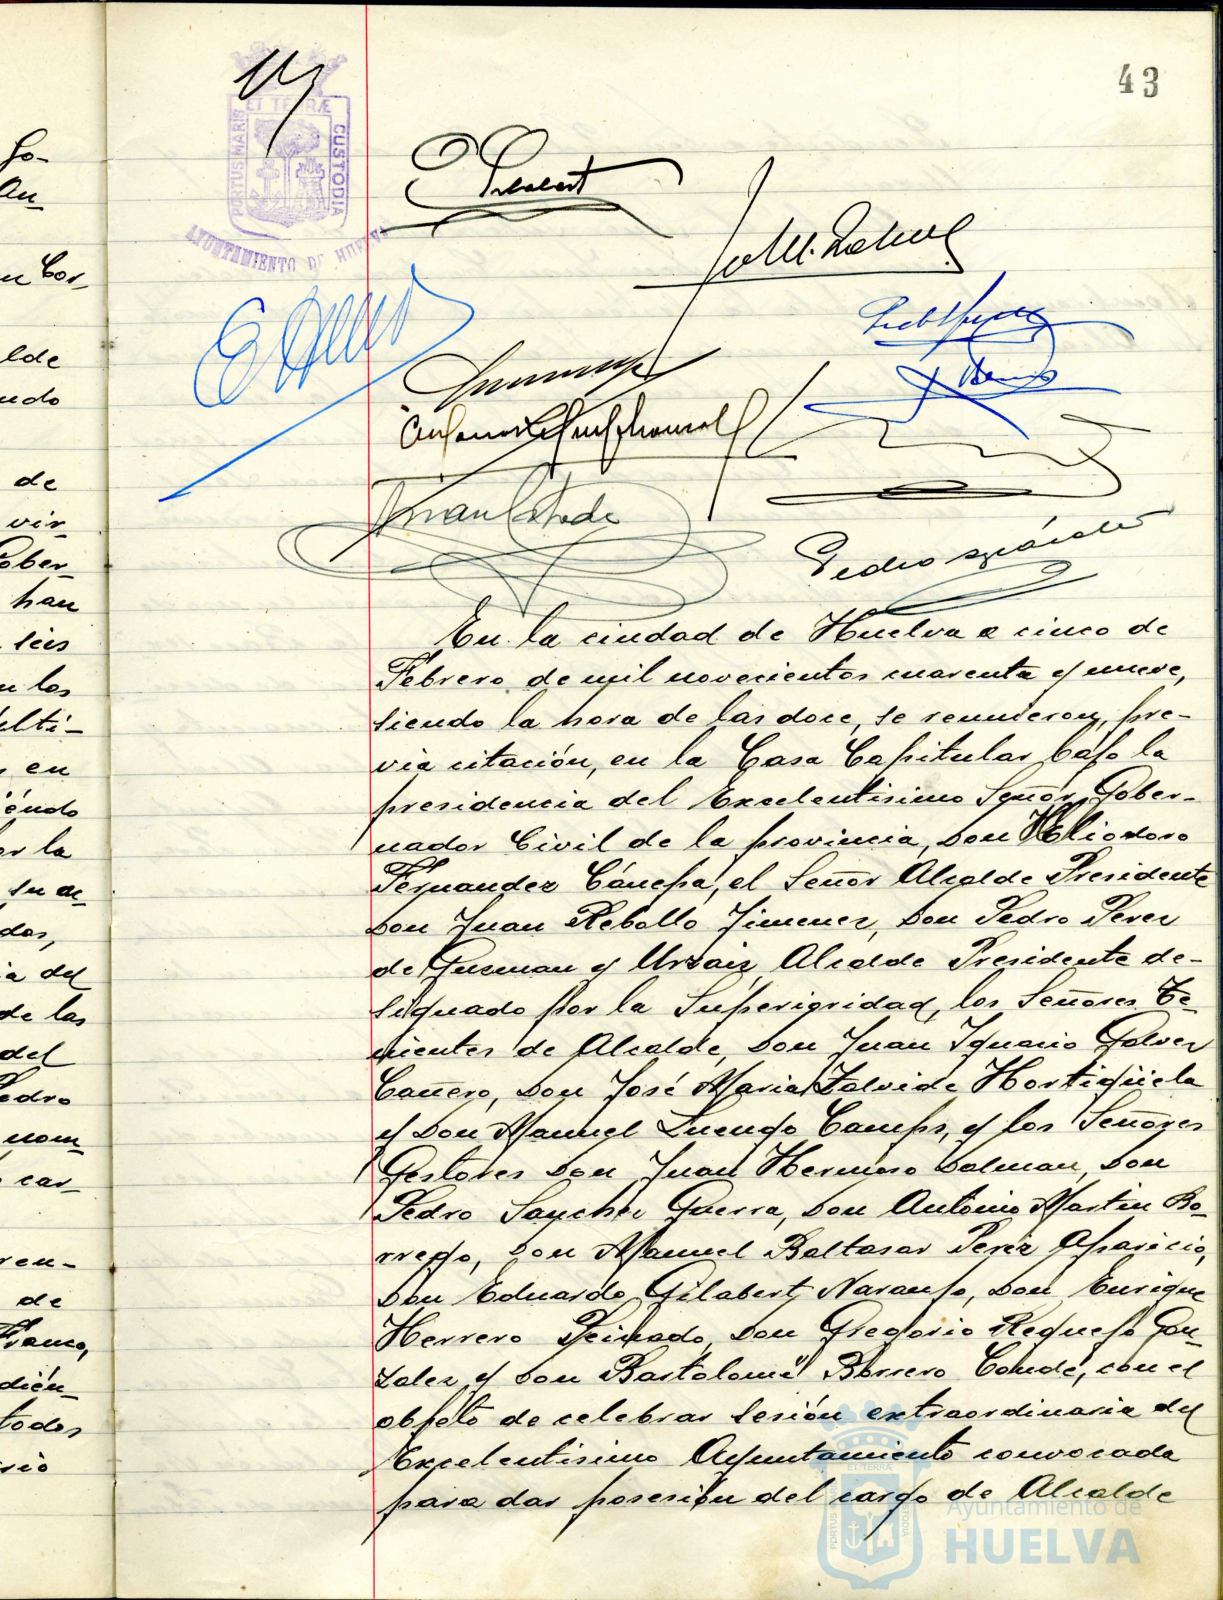 43
PORTUS MARIS ET TERRÆ CUSTODIA
AYUNTAMIENTO DE HUELVA
fo-
an
Cor-
lde
ndo
de
vir
ober-
han
seis
los
ulti-
en
iendo
or la
su ac-
dos,
ia del
de las
del
edro
nom-
car-
ren-
de
Franco,
dien-
todos
rio
Gilabert
Juan
Pedro
En la ciudad de Huelva a cinco de
Febrero de mil novecientos cuarenta y nueve,
siendo la hora de las doce, se reunieron, pre-
via citación, en la Casa Capitular bajo la
presidencia del Excelentisimo Señor Gober-
nador Civil de la provincia, Don Heliodoro
Fernandez Cánepa, el Señor Alcalde Presidente
Don Juan Rebollo Jimenez, Don Pedro Perez
de Guzman y Urzaiz, Alcalde Presidente de-
signado por la Superioridad, los Señores Te-
nientes de Alcalde, Don Juan Ignacio Galvez
Cañero, Don José Maria Zalvide Hortigüela
y Don Manuel Luengo Camps, y los Señores
Gestores Don Juan Hermoso Dolman, Don
Pedro Sanchez Guerra, Don Antonio Martin Bo-
rrego, Don Manuel Baltasar Perez Aparicio,
Don Eduardo Gilabert Naranjo, Don Enrique
Herrero Peinado, Don Gregorio Requejo Gon-
zalez y Don Bartolomé Borrero Conde, con el
objeto de celebrar sesión extraordinaria del
Excelentisimo Ayuntamiento convocada
para dar posesión del cargo de Alcalde
Ayuntamiento de
HUELVA